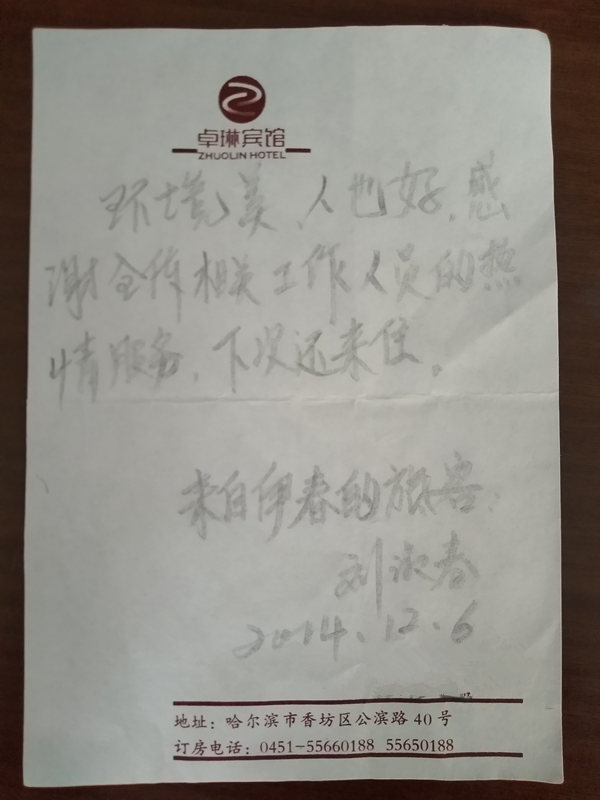 卓琳宾馆
ZHUOLIN HOTEL
环境美、人也好,感
谢全体相关工作人员的热
情服务,下次还来住。
来自伊春的旅客:
刘淑春
2014.12.6
地址:哈尔滨市香坊区公滨路 40 号
订房电话:0451-55660188 55650188